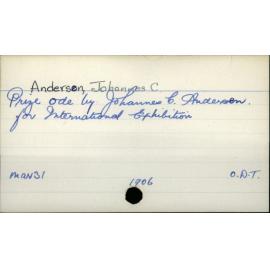 Anderson, Johannes C.
Prize ode by Johannes C. Anderson.
for International Exhibition
MAN31 1906 O.D.T.